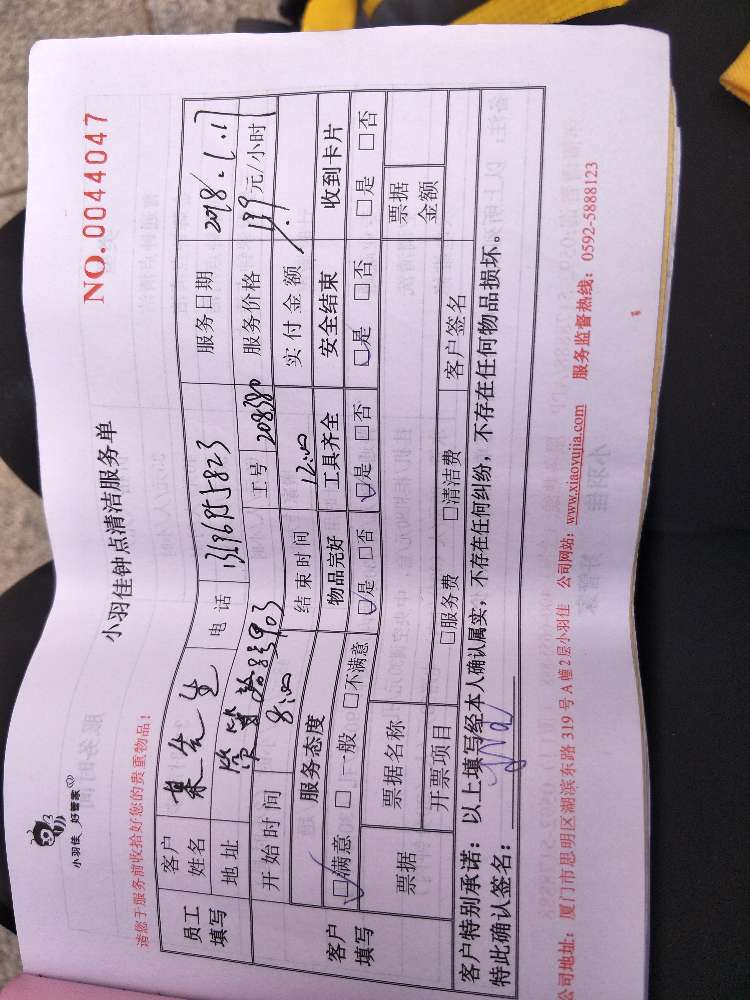 小羽佳 好管家
NO.0044047
小羽佳钟点清洁服务单
请您于服务前收拾好您的贵重物品！
员工填写
客户姓名 先生 电话 服务日期 2018.1.1
地址 工号 服务价格 139元/小时
开始时间 8:00 结束时间 12:00 实付金额
客户填写
服务态度 物品完好 工具齐全 安全结束 收到卡片
□满意 □一般 □不满意 □是 □否 □是 □否 □是 □否 □是 □否
票据 票据名称 票据金额
开票项目 □服务费 □清洁费 客户签名
客户特别承诺：以上填写经本人确认属实，不存在任何纠纷，不存在任何物品损坏。
特此确认签名：
公司地址：厦门市思明区湖滨东路319号A幢2层小羽佳 公司网站：www.xiaoyujia.com 服务监督热线：0592-5888123